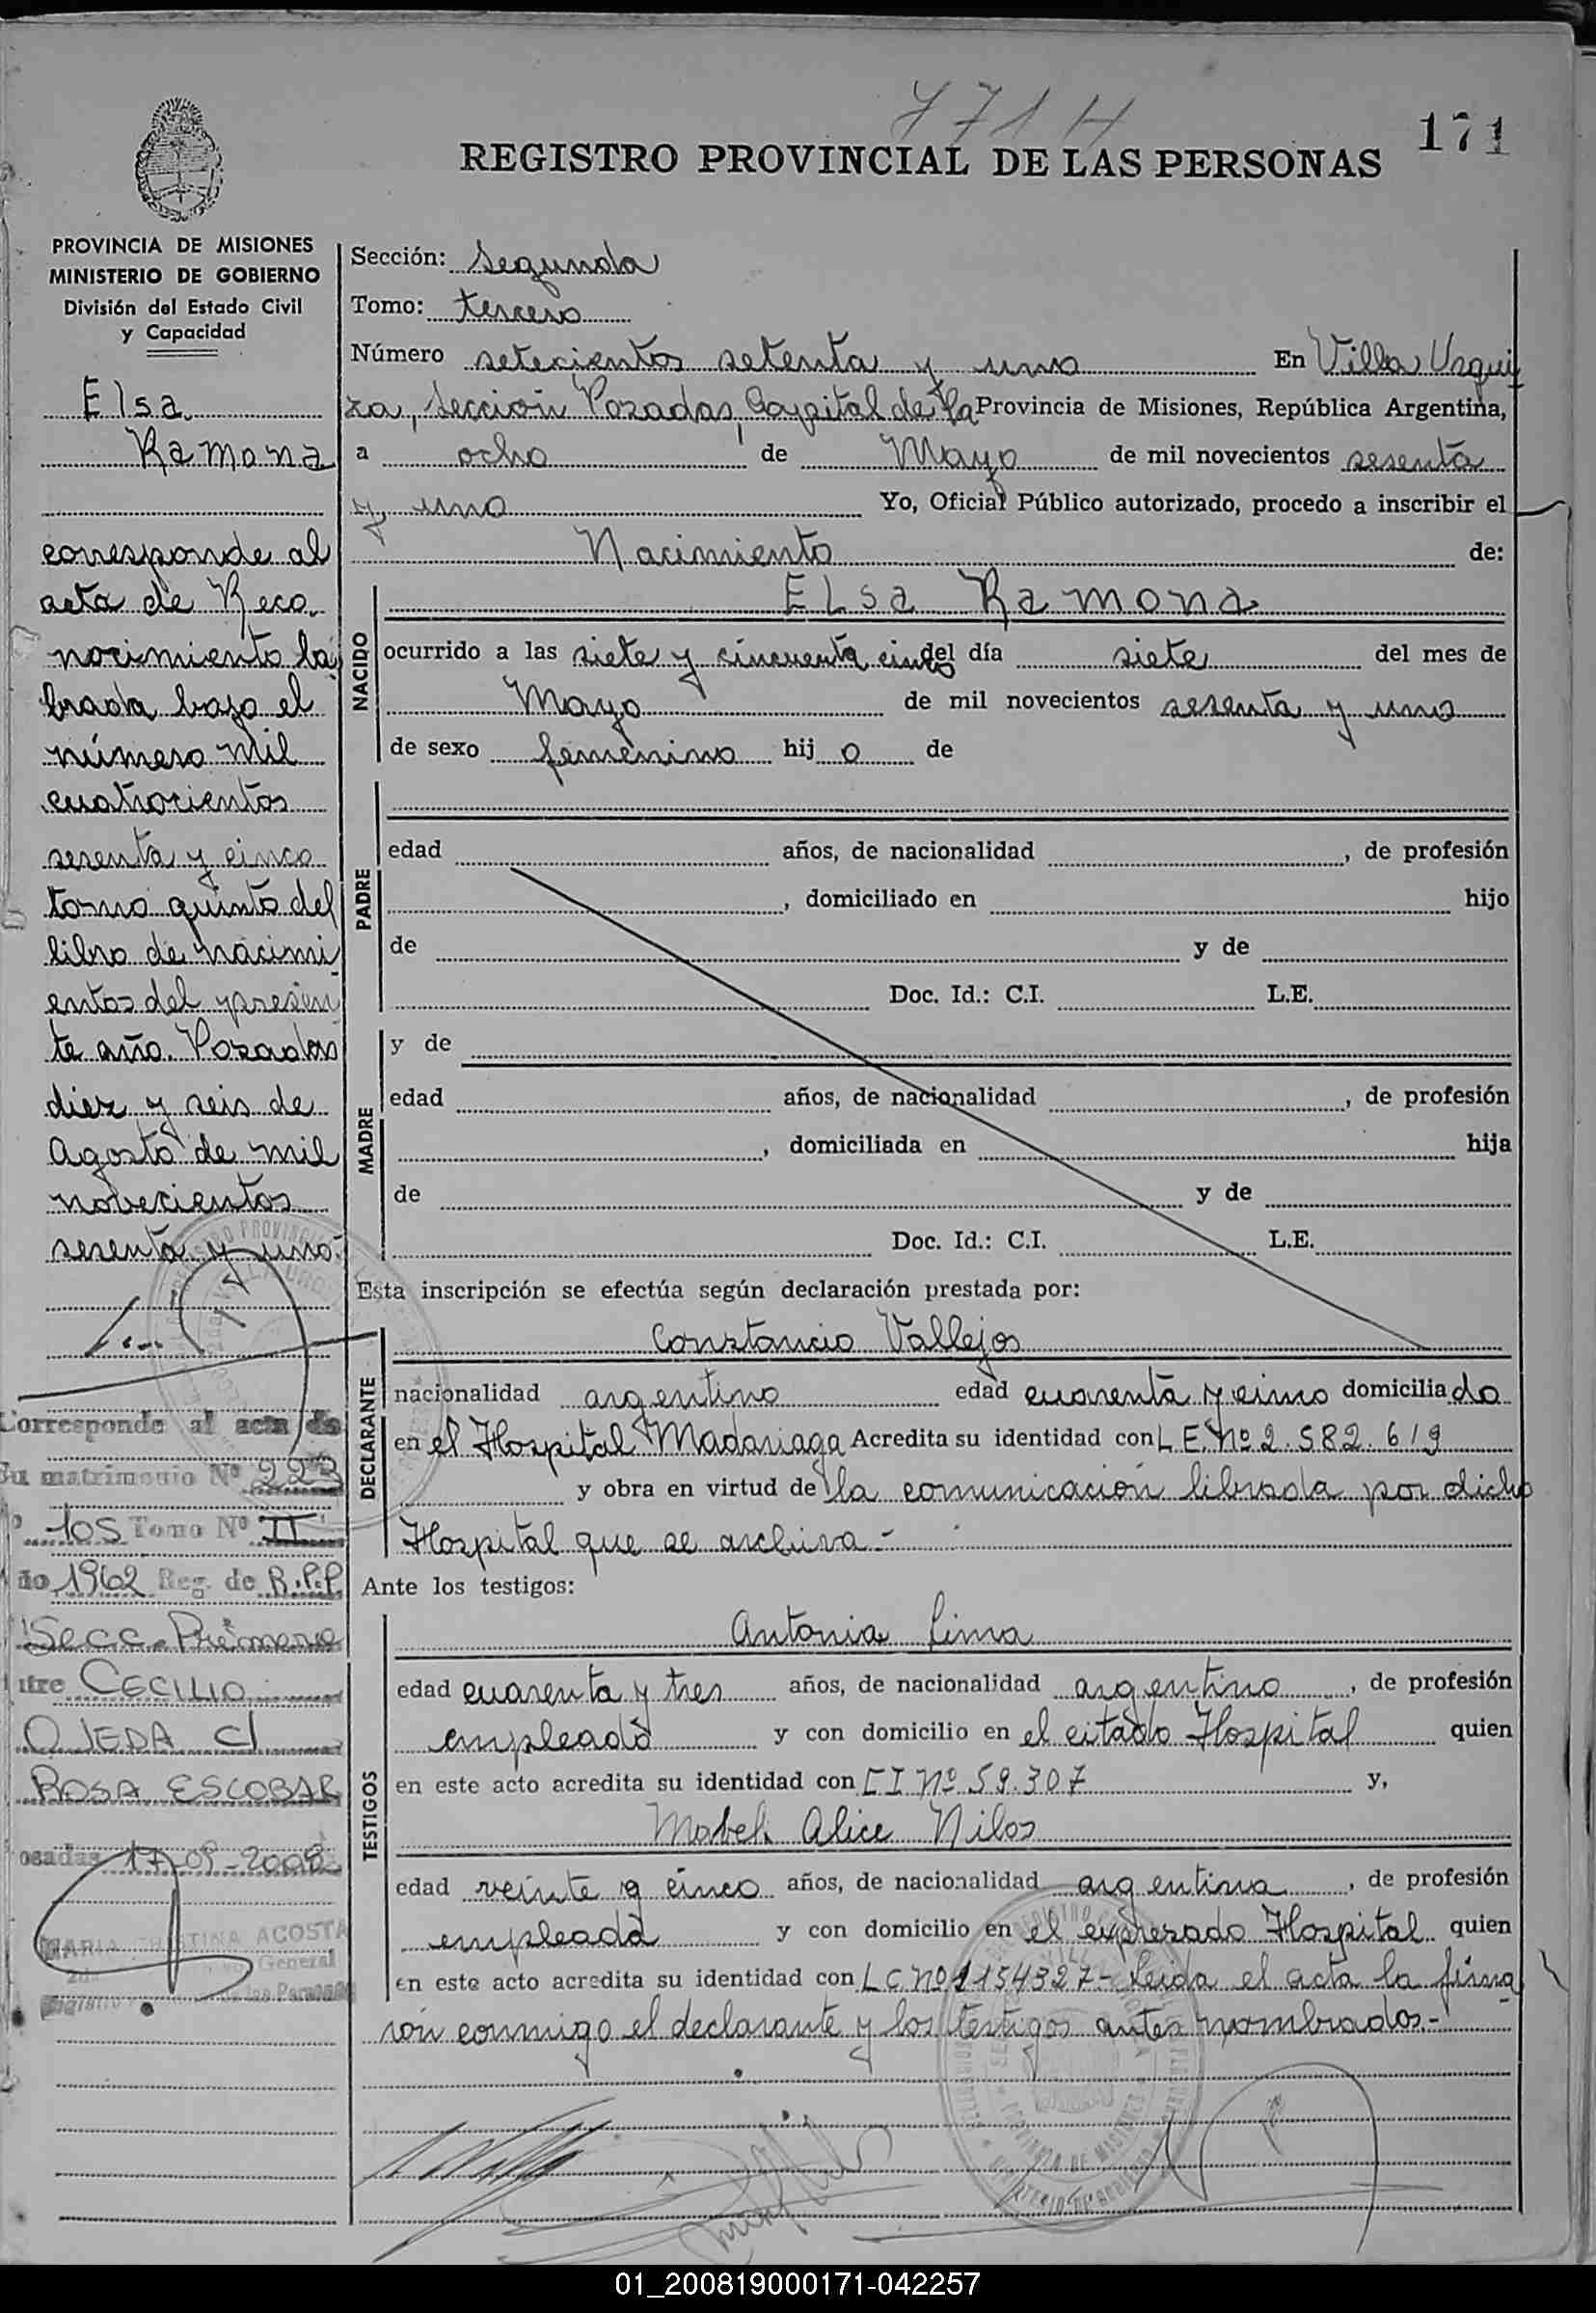 771 H
171
REGISTRO PROVINCIAL DE LAS PERSONAS
PROVINCIA DE MISIONES
MINISTERIO DE GOBIERNO
División del Estado Civil
y Capacidad
Elsa
Ramona
corresponde al
acta de Reco
nocimiento la
brada bajo el
número mil
cuatrocientos
sesenta y cinco
tomo quinto del
libro de nacimi
entos del presen
te año. Posadas
diez y seis de
Agosto de mil
novecientos
sesenta y uno.
Corresponde al acta de
su matrimonio Nº 223
105 Tomo Nº II
1962 Reg. de R.P.P
Secc. Primera
CECILIO
OJEDA C/
ROSA ESCOBAR
17-09-2008
MARIA CRISTINA ACOSTA
General
Sección: Segunda
Tomo: tercero
Número setecientos setenta y uno En Villa Urqui
za, Sección Posadas, Capital de la Provincia de Misiones, República Argentina,
a ocho de Mayo de mil novecientos sesenta
y uno Yo, Oficial Público autorizado, procedo a inscribir el
Nacimiento de:
NACIDO
Elsa Ramona
ocurrido a las siete y cincuenta cinco del día siete del mes de
Mayo de mil novecientos sesenta y uno
de sexo femenino hij o de
PADRE
edad años, de nacionalidad , de profesión
, domiciliado en hijo
de y de
Doc. Id.: C.I. L.E.
MADRE
y de
edad años, de nacionalidad , de profesión
, domiciliada en hija
de y de
Doc. Id.: C.I. L.E.
Esta inscripción se efectúa según declaración prestada por:
DECLARANTE
Constancio Vallejos
nacionalidad argentino edad cuarenta y cinco domicilia do
en el Hospital Madariaga Acredita su identidad con L E. Nº 2.582.619
y obra en virtud de la comunicación librada por dicho
Hospital que se archiva.-
Ante los testigos:
TESTIGOS
Antonia Lima
edad cuarenta y tres años, de nacionalidad argentino, de profesión
empleado y con domicilio en el citado Hospital quien
en este acto acredita su identidad con C I Nº 59.307 y,
Mabel Alice Nilos
edad veinte y cinco años, de nacionalidad argentina, de profesión
empleada y con domicilio en el expresado Hospital quien
en este acto acredita su identidad con L C Nº 1154327- Leida el acta la firma
ron conmigo el declarante y los testigos antes nombrados.-
01_200819000171-042257